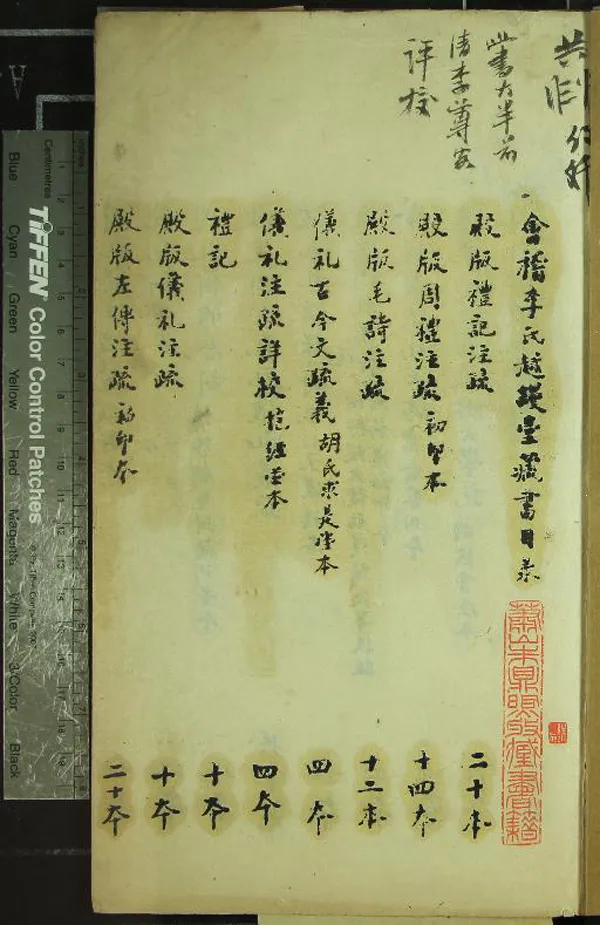 此書大半前
清李蓴客
評校
會稽李氏越縵堂藏書目录
殿版禮記注疏 二十本
殿版周禮注疏 初印本 十四本
殿版毛詩注疏 十二本
儀礼古今文疏義 胡氏求是堂本 四本
儀礼注疏詳校 抱經堂本 四本
禮記 十本
殿版儀礼注疏 十本
殿版左傳注疏 初印本 二十本
蕭山朱鼎煦收藏書籍
Centimetres
TIFFEN Color Control Patches
Blue
Cyan
Green
Yellow
Red
Magenta
White
3/Color
Black